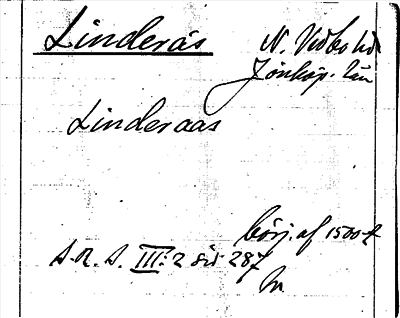 Linderås
N. Vedbo hd
Jönköp. län
Linderaas
börj. af 1500-t
S.R.S. III: 2 sid 287